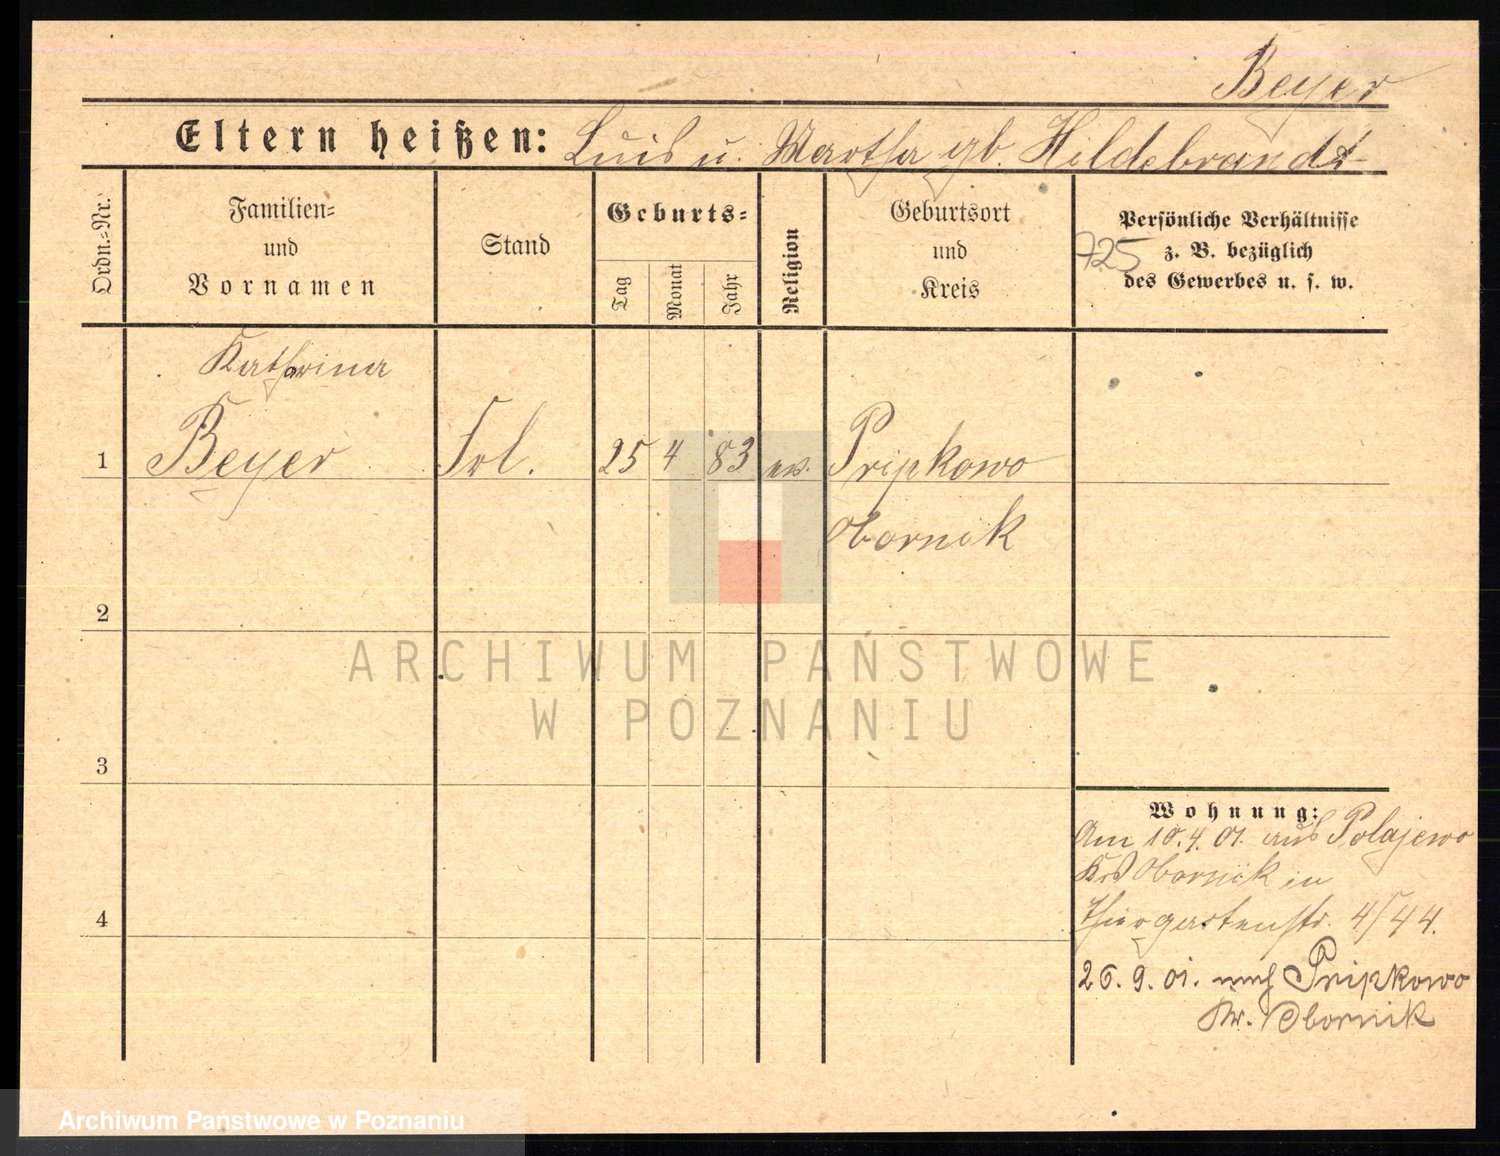 Beyer
Eltern heißen: Luis u. Martha gb. Hildebrandt
Ordn.=Nr.
Familien=
und
Vornamen
Stand
Geburts=
Tag
Monat
Jahr
Religion
Geburtsort
und
Kreis
725
Persönliche Verhältnisse
z. B. bezüglich
des Gewerbes u. s. w.
Katharina
1 Beyer Frl. 25 4 83 ev. Pripkowo
Obornik
2
3
4
Wohnung:
Am 10.4.01. aus Polajewo
Krs Obornik in
Thiergartenstr. 4/44.
26.9.01. nach Pripkowo
Kr. Obornik
ARCHIWUM PAŃSTWOWE
W POZNANIU
Archiwum Państwowe w Poznaniu